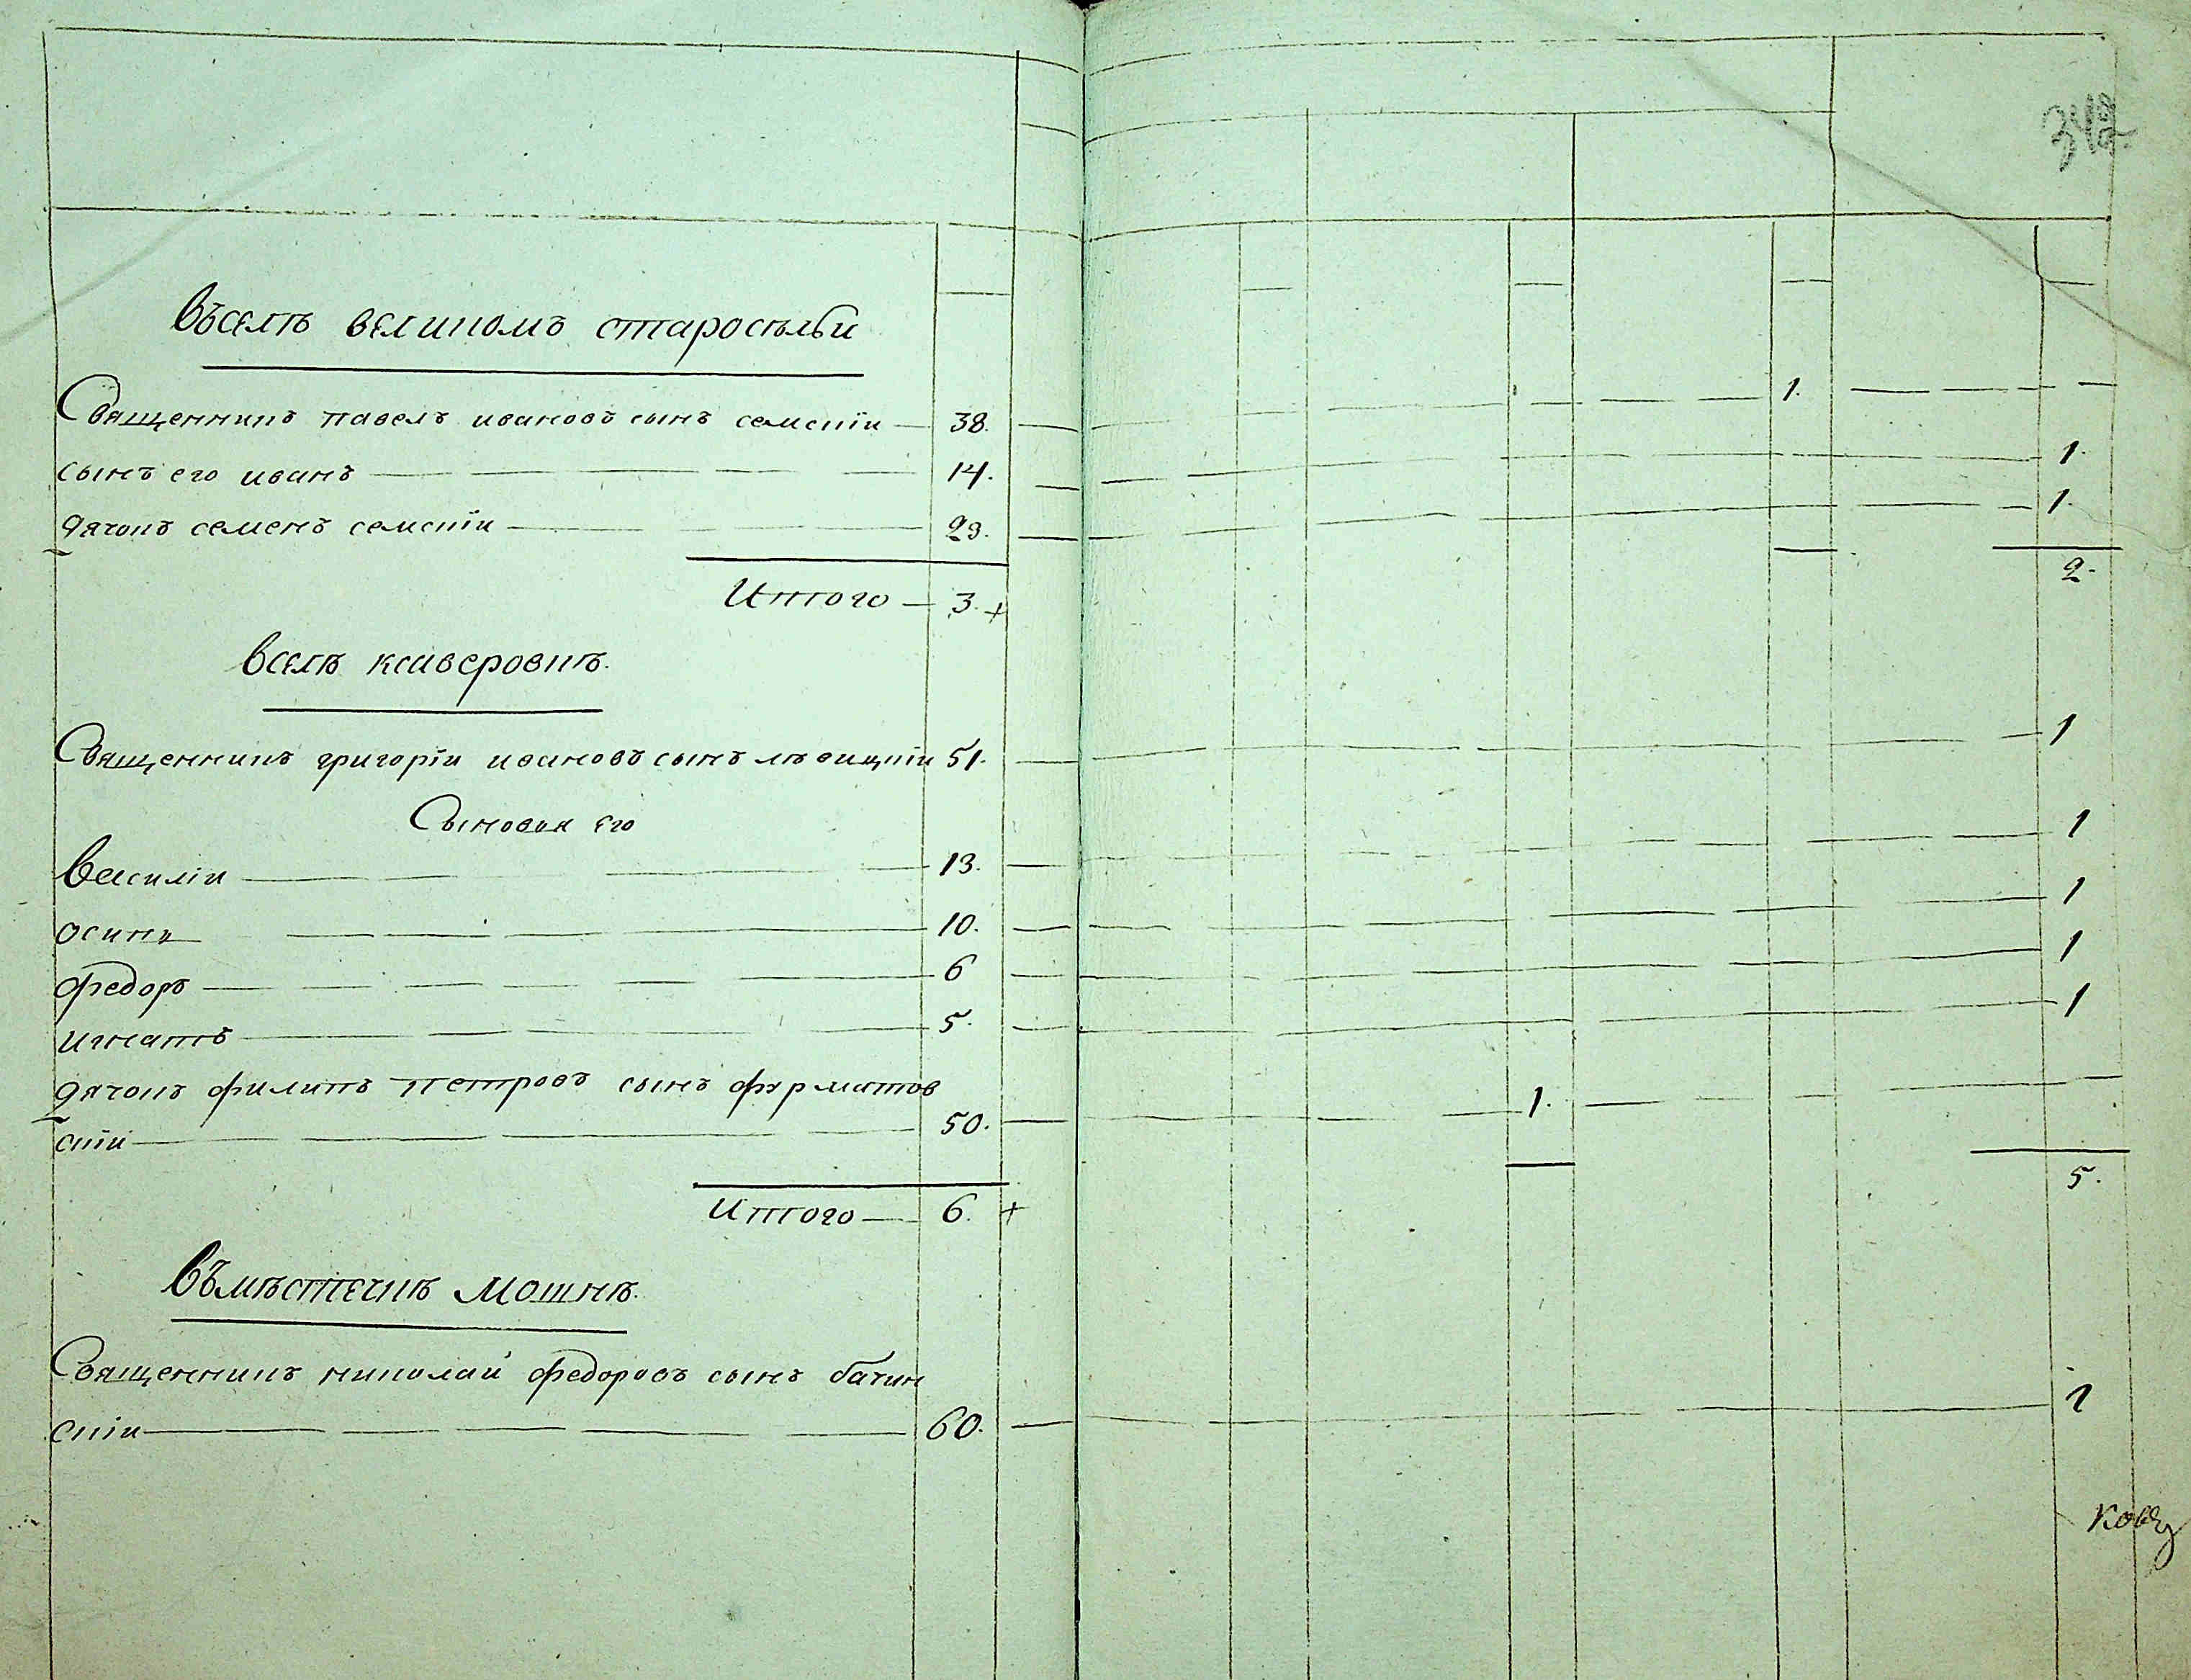 342
Въселѣ великомъ старосѣльи
Священникъ павелъ ивановъ сынъ семскїи 38. 1.
сынъ его иванъ 14. 1.
дячокъ семенъ семскїи 23. 1.
Итого 3. + 2.
Вселѣ ксаверовкѣ.
Священникъ григорїи ивановъ сынъ лѣвицкїи 51. 1
Сыновья его
Василїи 13. 1
осипъ 10. 1
федоръ 6 1
игнатъ 5. 1
дячокъ филипъ петровъ сынъ фурматов
скїи 50. 1.
Итого 6. + 5.
Въмѣстечкѣ мошнѣ.
Священникъ николаи федоровъ сынъ бачин
скїи 60. 1